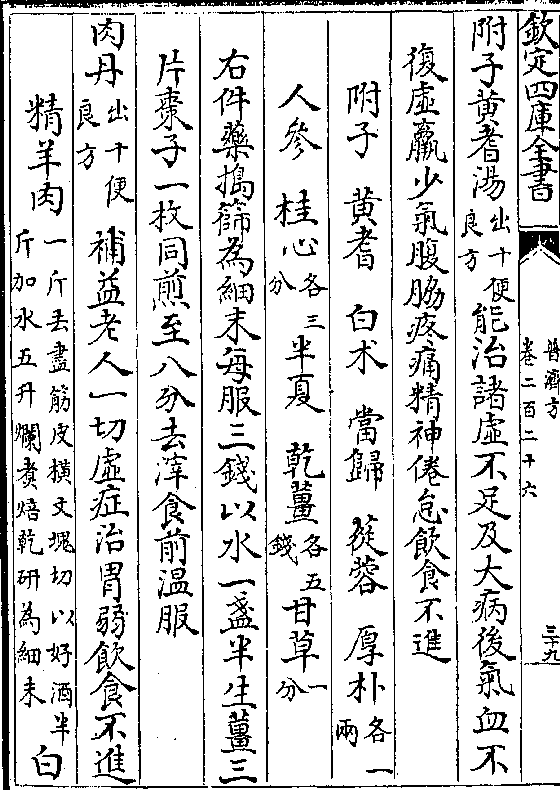 欽定四庫全書
普濟方
卷二百二十六
三十九
附子黃耆湯出十便良方能治諸虛不足及大病後氣血不
復虛羸少氣腹脇疼痛精神倦怠飲食不進
附子 黃耆 白术 當歸 蓯蓉 厚朴各一兩
人參 桂心各三分半夏 乾薑各五錢甘草一分
右件藥搗篩為細末每服三錢以水一盞半生薑三
片棗子一枚同煎至八分去滓食前温服
肉丹出十便良方 補益老人一切虛症治胃弱飲食不進
精羊肉一斤去盡筋皮橫文塊切以好酒半斤加水五升爛煑焙乾研為細末 白